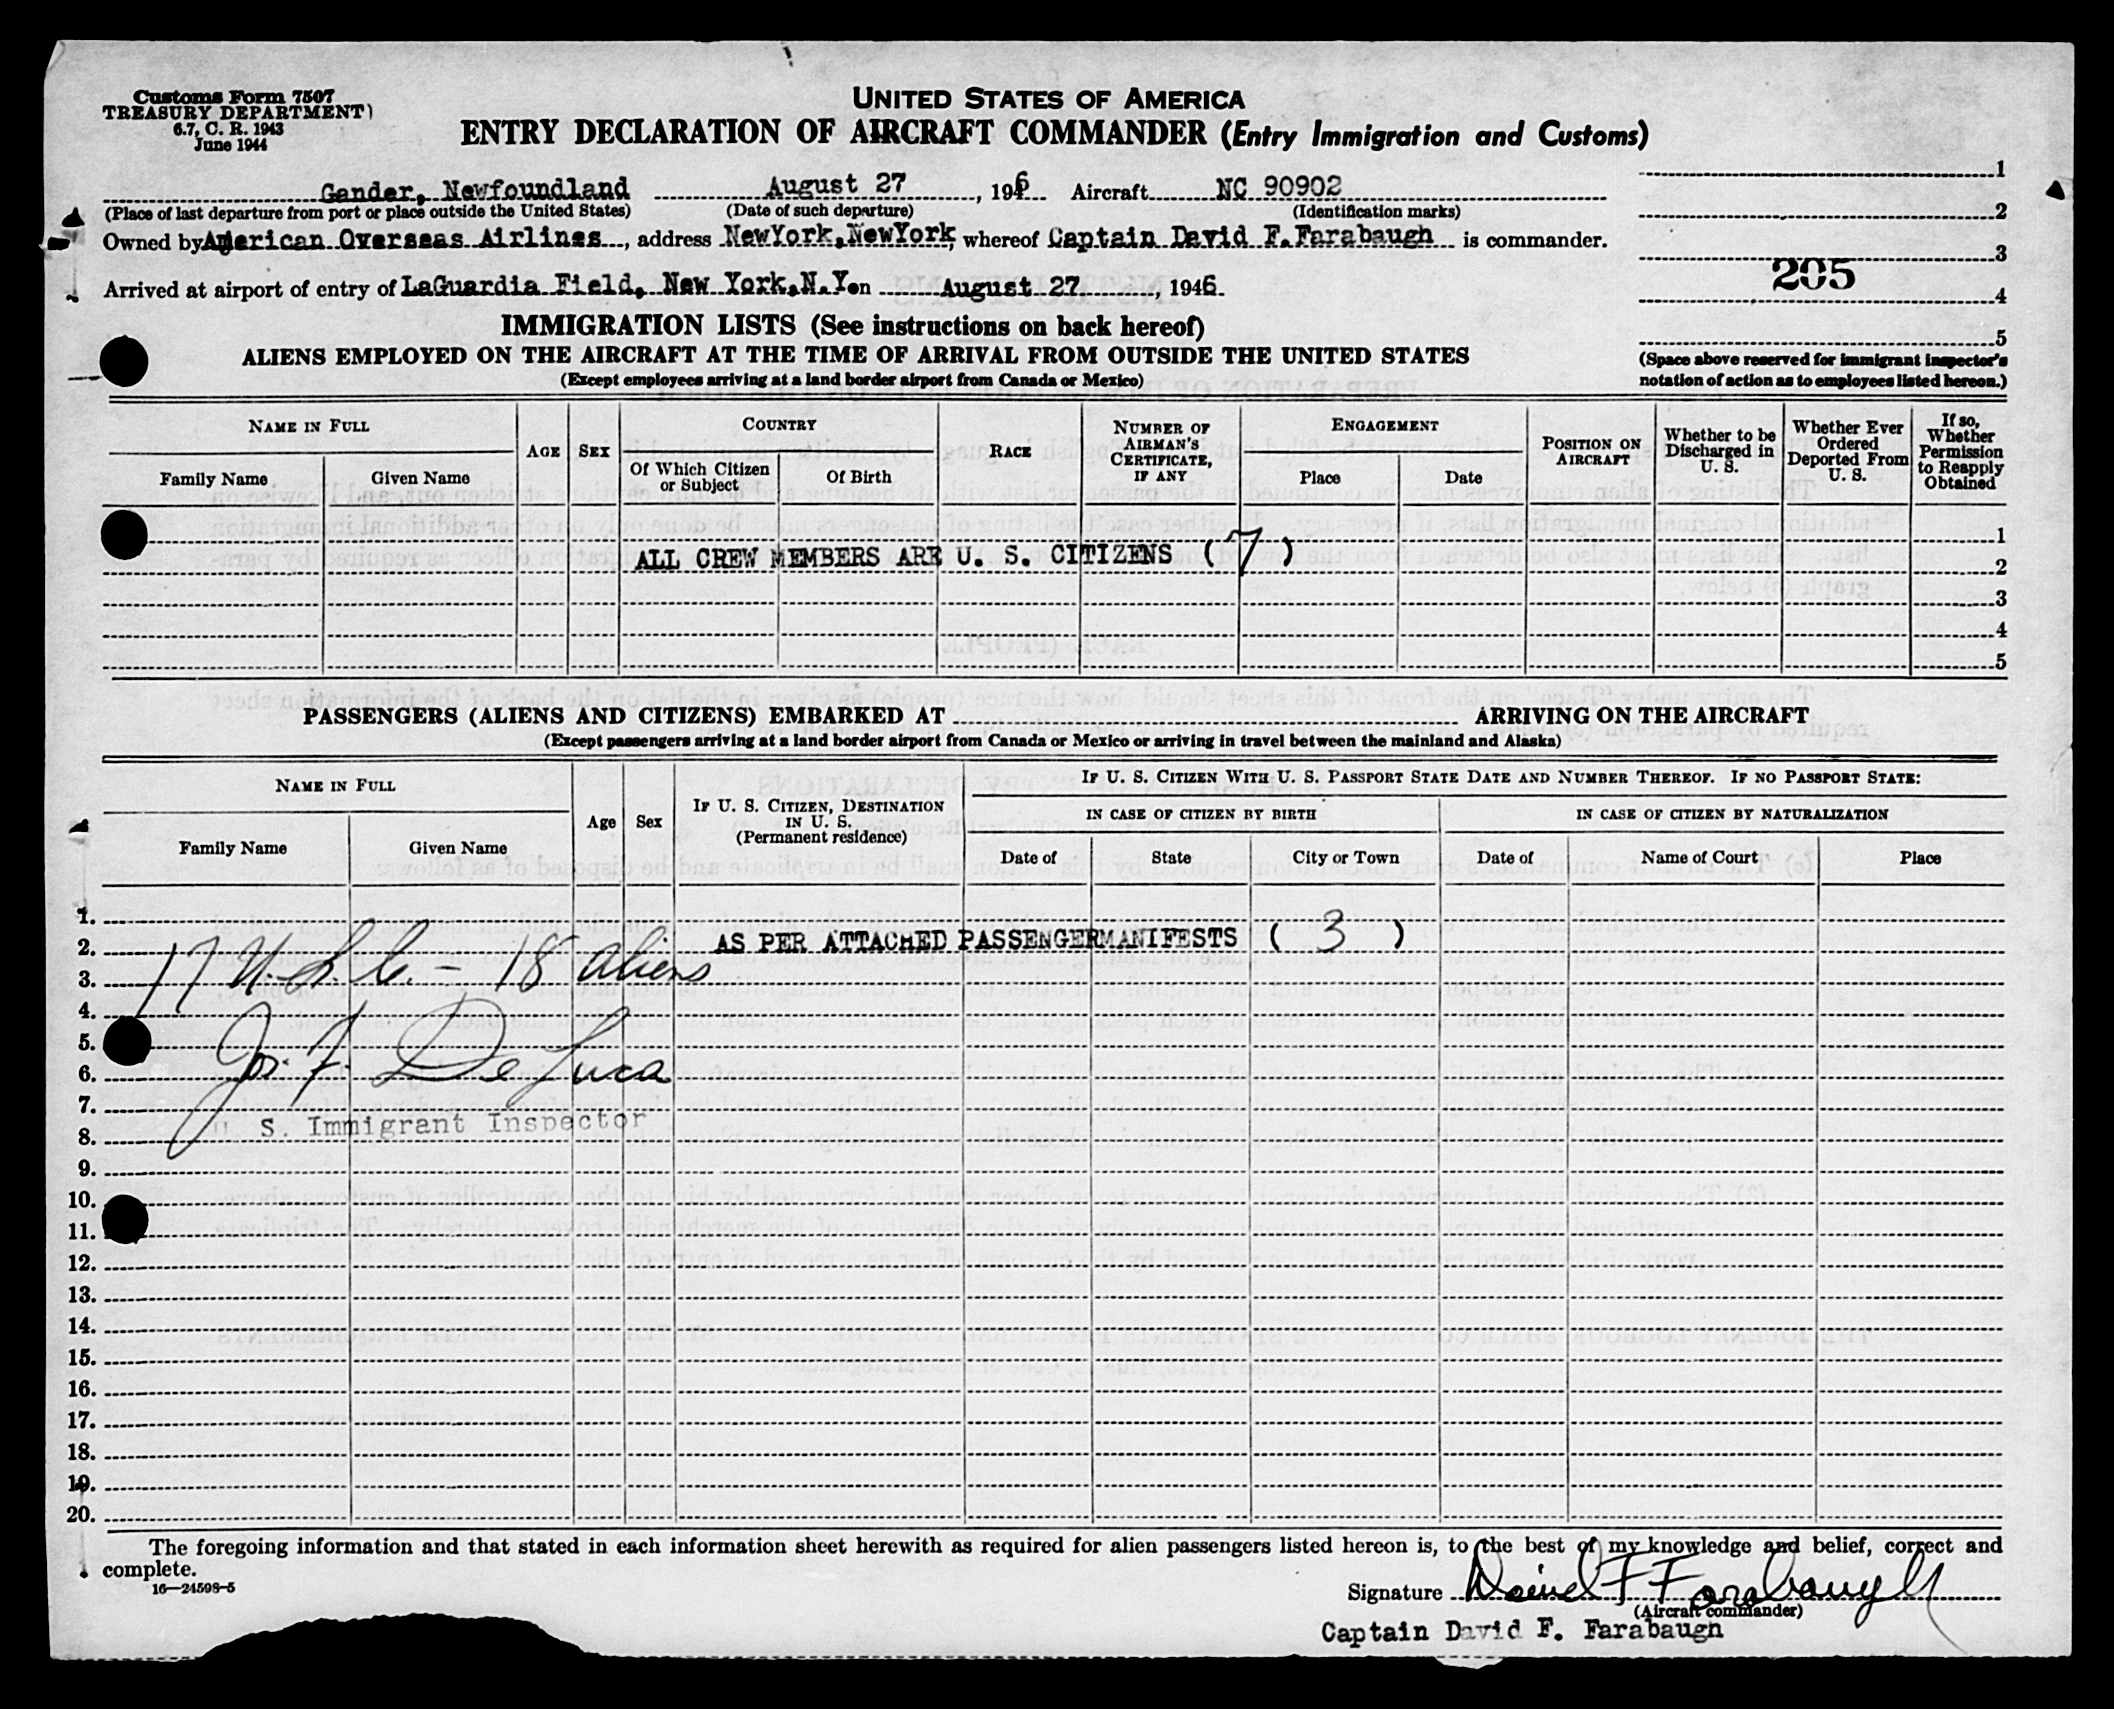 Customs Form 7507
TREASURY DEPARTMENT)
6.7, C. R. 1943
June 1944
UNITED STATES OF AMERICA
ENTRY DECLARATION OF AIRCRAFT COMMANDER (Entry Immigration and Customs)
Gander, Newfoundland August 27, 1946 Aircraft NC 90902
(Place of last departure from port or place outside the United States) (Date of such departure) (Identification marks)
Owned by American Overseas Airlines, address NewYork,NewYork, whereof Captain David F.Farabaugh is commander.
Arrived at airport of entry of LaGuardia Field, New York,N.Y.on August 27, 1946.
1
2
3
205
4
5
(Space above reserved for immigrant inspector's
notation of action as to employees listed hereon.)
IMMIGRATION LISTS (See instructions on back hereof)
ALIENS EMPLOYED ON THE AIRCRAFT AT THE TIME OF ARRIVAL FROM OUTSIDE THE UNITED STATES
(Except employees arriving at a land border airport from Canada or Mexico)
NAME IN FULL
Family Name
Given Name
AGE
SEX
COUNTRY
Of Which Citizen
or Subject
Of Birth
RACE
NUMBER OF
AIRMAN'S
CERTIFICATE,
IF ANY
ENGAGEMENT
Place
Date
POSITION ON
AIRCRAFT
Whether to be
Discharged in
U. S.
Whether Ever
Ordered
Deported From
U. S.
If so,
Whether
Permission
to Reapply
Obtained
1
ALL CREW MEMBERS ARE U. S. CITIZENS (7)
2
3
4
5
PASSENGERS (ALIENS AND CITIZENS) EMBARKED AT ARRIVING ON THE AIRCRAFT
(Except passengers arriving at a land border airport from Canada or Mexico or arriving in travel between the mainland and Alaska)
NAME IN FULL
Family Name
Given Name
Age
Sex
IF U. S. CITIZEN, DESTINATION
IN U. S.
(Permanent residence)
IF U. S. CITIZEN WITH U. S. PASSPORT STATE DATE AND NUMBER THEREOF. IF NO PASSPORT STATE:
IN CASE OF CITIZEN BY BIRTH
Date of
State
City or Town
IN CASE OF CITIZEN BY NATURALIZATION
Date of
Name of Court
Place
1.
2. AS PER ATTACHED PASSENGERMANIFESTS ( 3 )
3. 17 U.S.C. - 18 aliens
4.
5.
6. Jos. F. De Luca
7.
8. U. S. Immigrant Inspector
9.
10.
11.
12.
13.
14.
15.
16.
17.
18.
19.
20.
The foregoing information and that stated in each information sheet herewith as required for alien passengers listed hereon is, to the best of my knowledge and belief, correct and
complete.
16—24598-5
Signature David F Farabaugh
(Aircraft commander)
Captain David F. Farabaugh